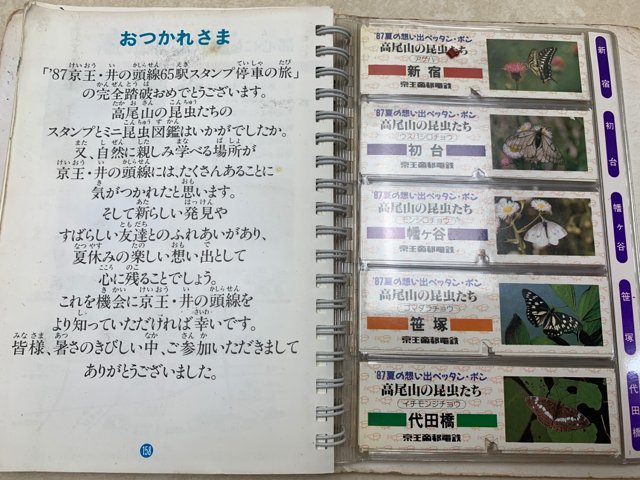 おつかれさま
「'87京王・井の頭線65駅スタンプ停車の旅」
の完全踏破おめでとうございます。
高尾山の昆虫たちの
スタンプとミニ昆虫図鑑はいかがでしたか。
又、自然に親しみ学べる場所が
京王・井の頭線には、たくさんあることに
気がつかれたと思います。
そして新らしい発見や
すばらしい友達とのふれあいがあり、
夏休みの楽しい想い出として
心に残ることでしょう。
これを機会に京王・井の頭線を
より知っていただければ幸いです。
皆様、暑さのきびしい中、ご参加いただきまして
ありがとうございました。
158
'87夏の想い出ペッタン・ポン
高尾山の昆虫たち
アゲハ
新宿
京王帝都電鉄
'87夏の想い出ペッタン・ポン
高尾山の昆虫たち
ウスバシロチョウ
初台
京王帝都電鉄
'87夏の想い出ペッタン・ポン
高尾山の昆虫たち
モンシロチョウ
幡ヶ谷
京王帝都電鉄
'87夏の想い出ペッタン・ポン
高尾山の昆虫たち
ゴマダラチョウ
笹塚
京王帝都電鉄
'87夏の想い出ペッタン・ポン
高尾山の昆虫たち
イチモンジチョウ
代田橋
京王帝都電鉄
新宿
初台
幡ヶ谷
笹塚
代田橋